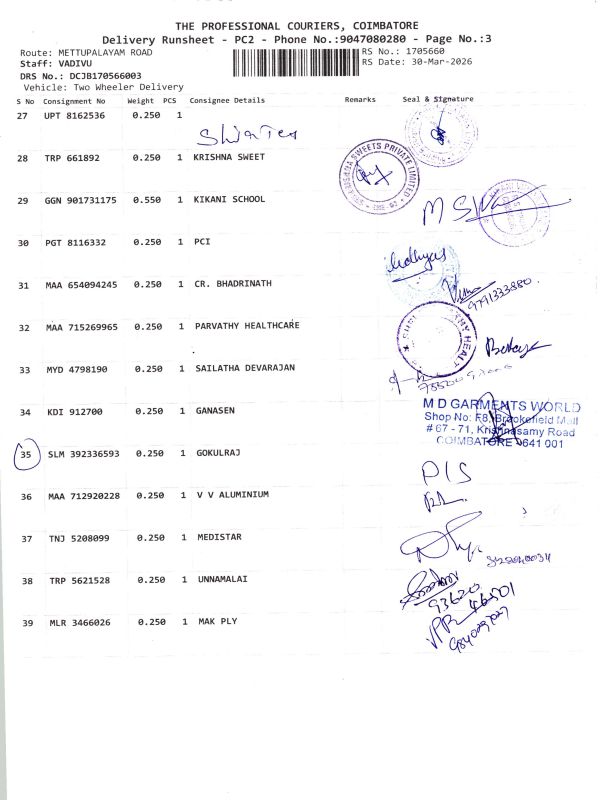 THE PROFESSIONAL COURIERS, COIMBATORE
Delivery Runsheet - PC2 - Phone No.:9047080280 - Page No.:3
Route: METTUPALAYAM ROAD RS No.: 1705660
Staff: VADIVU RS Date: 30-Mar-2026
DRS No.: DCJB170566003
Vehicle: Two Wheeler Delivery
S No Consignment No Weight PCS Consignee Details Remarks Seal & Signature
27 UPT 8162536 0.250 1
28 TRP 661892 0.250 1 KRISHNA SWEET
SWEETS PRIVATE LIMITED
29 GGN 901731175 0.550 1 KIKANI SCHOOL
30 PGT 8116332 0.250 1 PCI
31 MAA 654094245 0.250 1 CR. BHADRINATH
9791333880
32 MAA 715269965 0.250 1 PARVATHY HEALTHCARE
33 MYD 4798190 0.250 1 SAILATHA DEVARAJAN
34 KDI 912700 0.250 1 GANASEN
M D GARMENTS WORLD
Shop No: F8, Brookefield Mall
# 67 - 71, Krishnasamy Road
COIMBATORE 641 001
35 SLM 392336593 0.250 1 GOKULRAJ
PIS
36 MAA 712920228 0.250 1 V V ALUMINIUM
37 TNJ 5208099 0.250 1 MEDISTAR
38 TRP 5621528 0.250 1 UNNAMALAI
93620
46501
39 MLR 3466026 0.250 1 MAK PLY